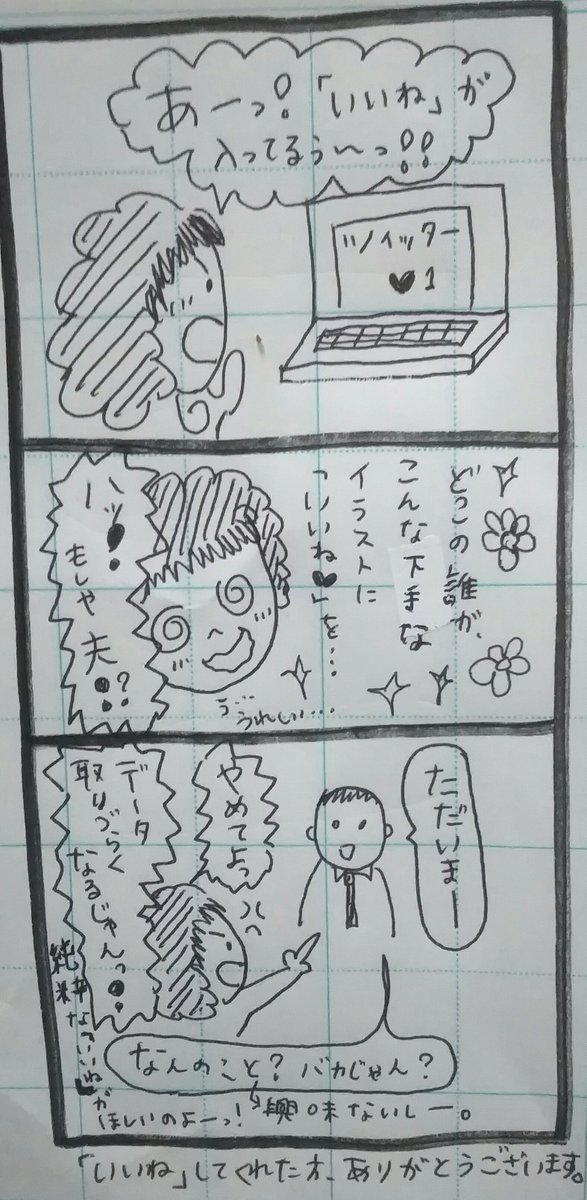 あーっ!「いいね」が
入ってるぅ〜っ!!
ツイッター
♥1
どこの誰が、
こんな下手な
イラストに
「いいね♥」を…
う…
うれしい…
ハッ!
もしや夫!?
ただいまー
やめてよっ
データ
取りづらく
なるじゃんっ!!
純粋な「いいね」が
ほしいのよーっ!
なんのこと?バカじゃん?
興味ないしー。
「いいね」してくれた方、ありがとうございます。